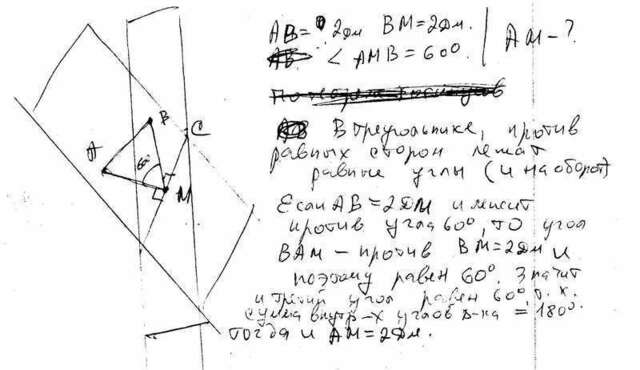 AB = 2дм BM = 2дм. | AM - ?
∠ AMB = 60°
В треугольнике, против
равных сторон лежат
равные углы (и наоборот)
Если AB = 2дм и лежит
против угла 60°, то угол
BAM - против BM = 2дм и
поэтому равен 60°. Значит
и третий угол равен 60°, т.к.
сумма внутр-х углов Δ-ка = 180°.
тогда и AM = 2дм.
B
C
A
60°
M